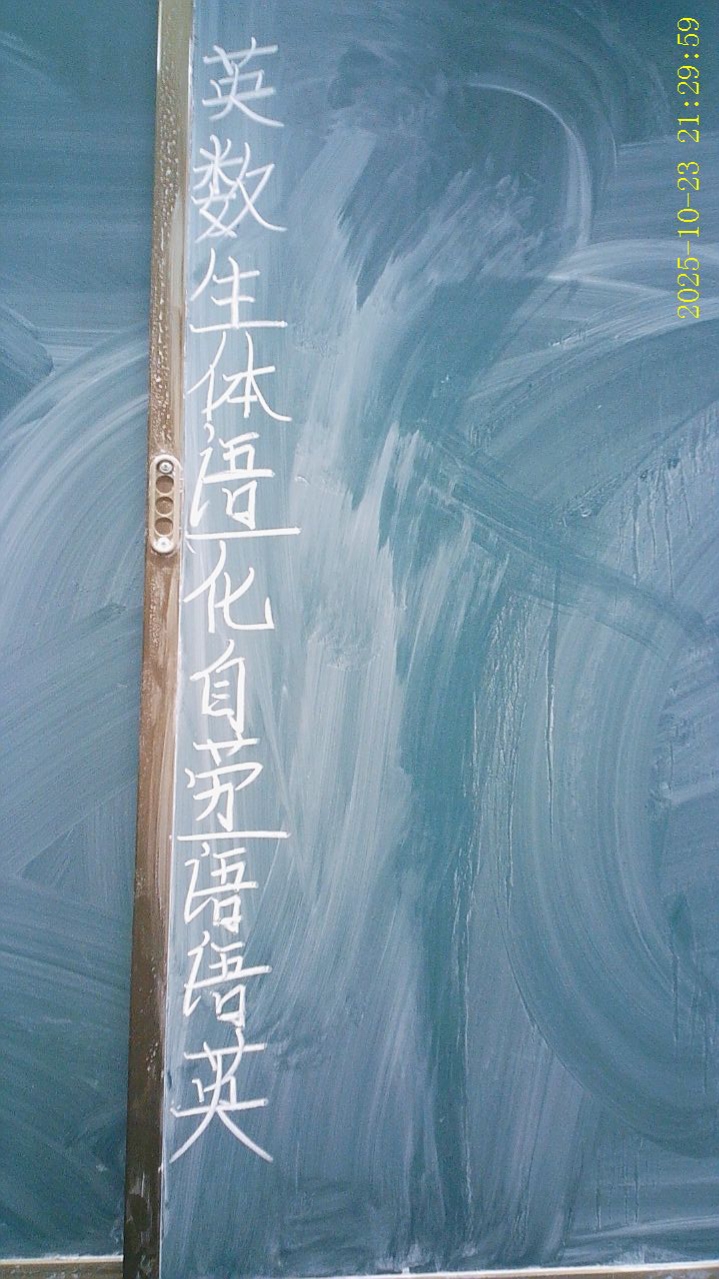 英数生体语化自劳语语英
2025-10-23 21:29:59